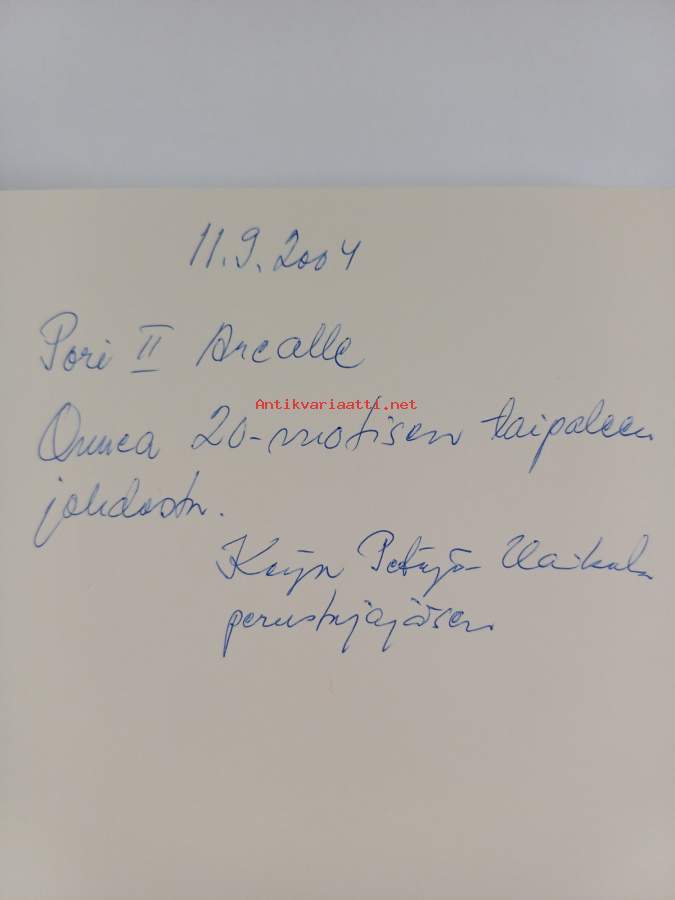 11.9.2004
Pori II Arealle
Antikvariaatti.net
Onnea 20-vuotisen taipaleen
johdosta.
Petäjä-
perustajajäsen